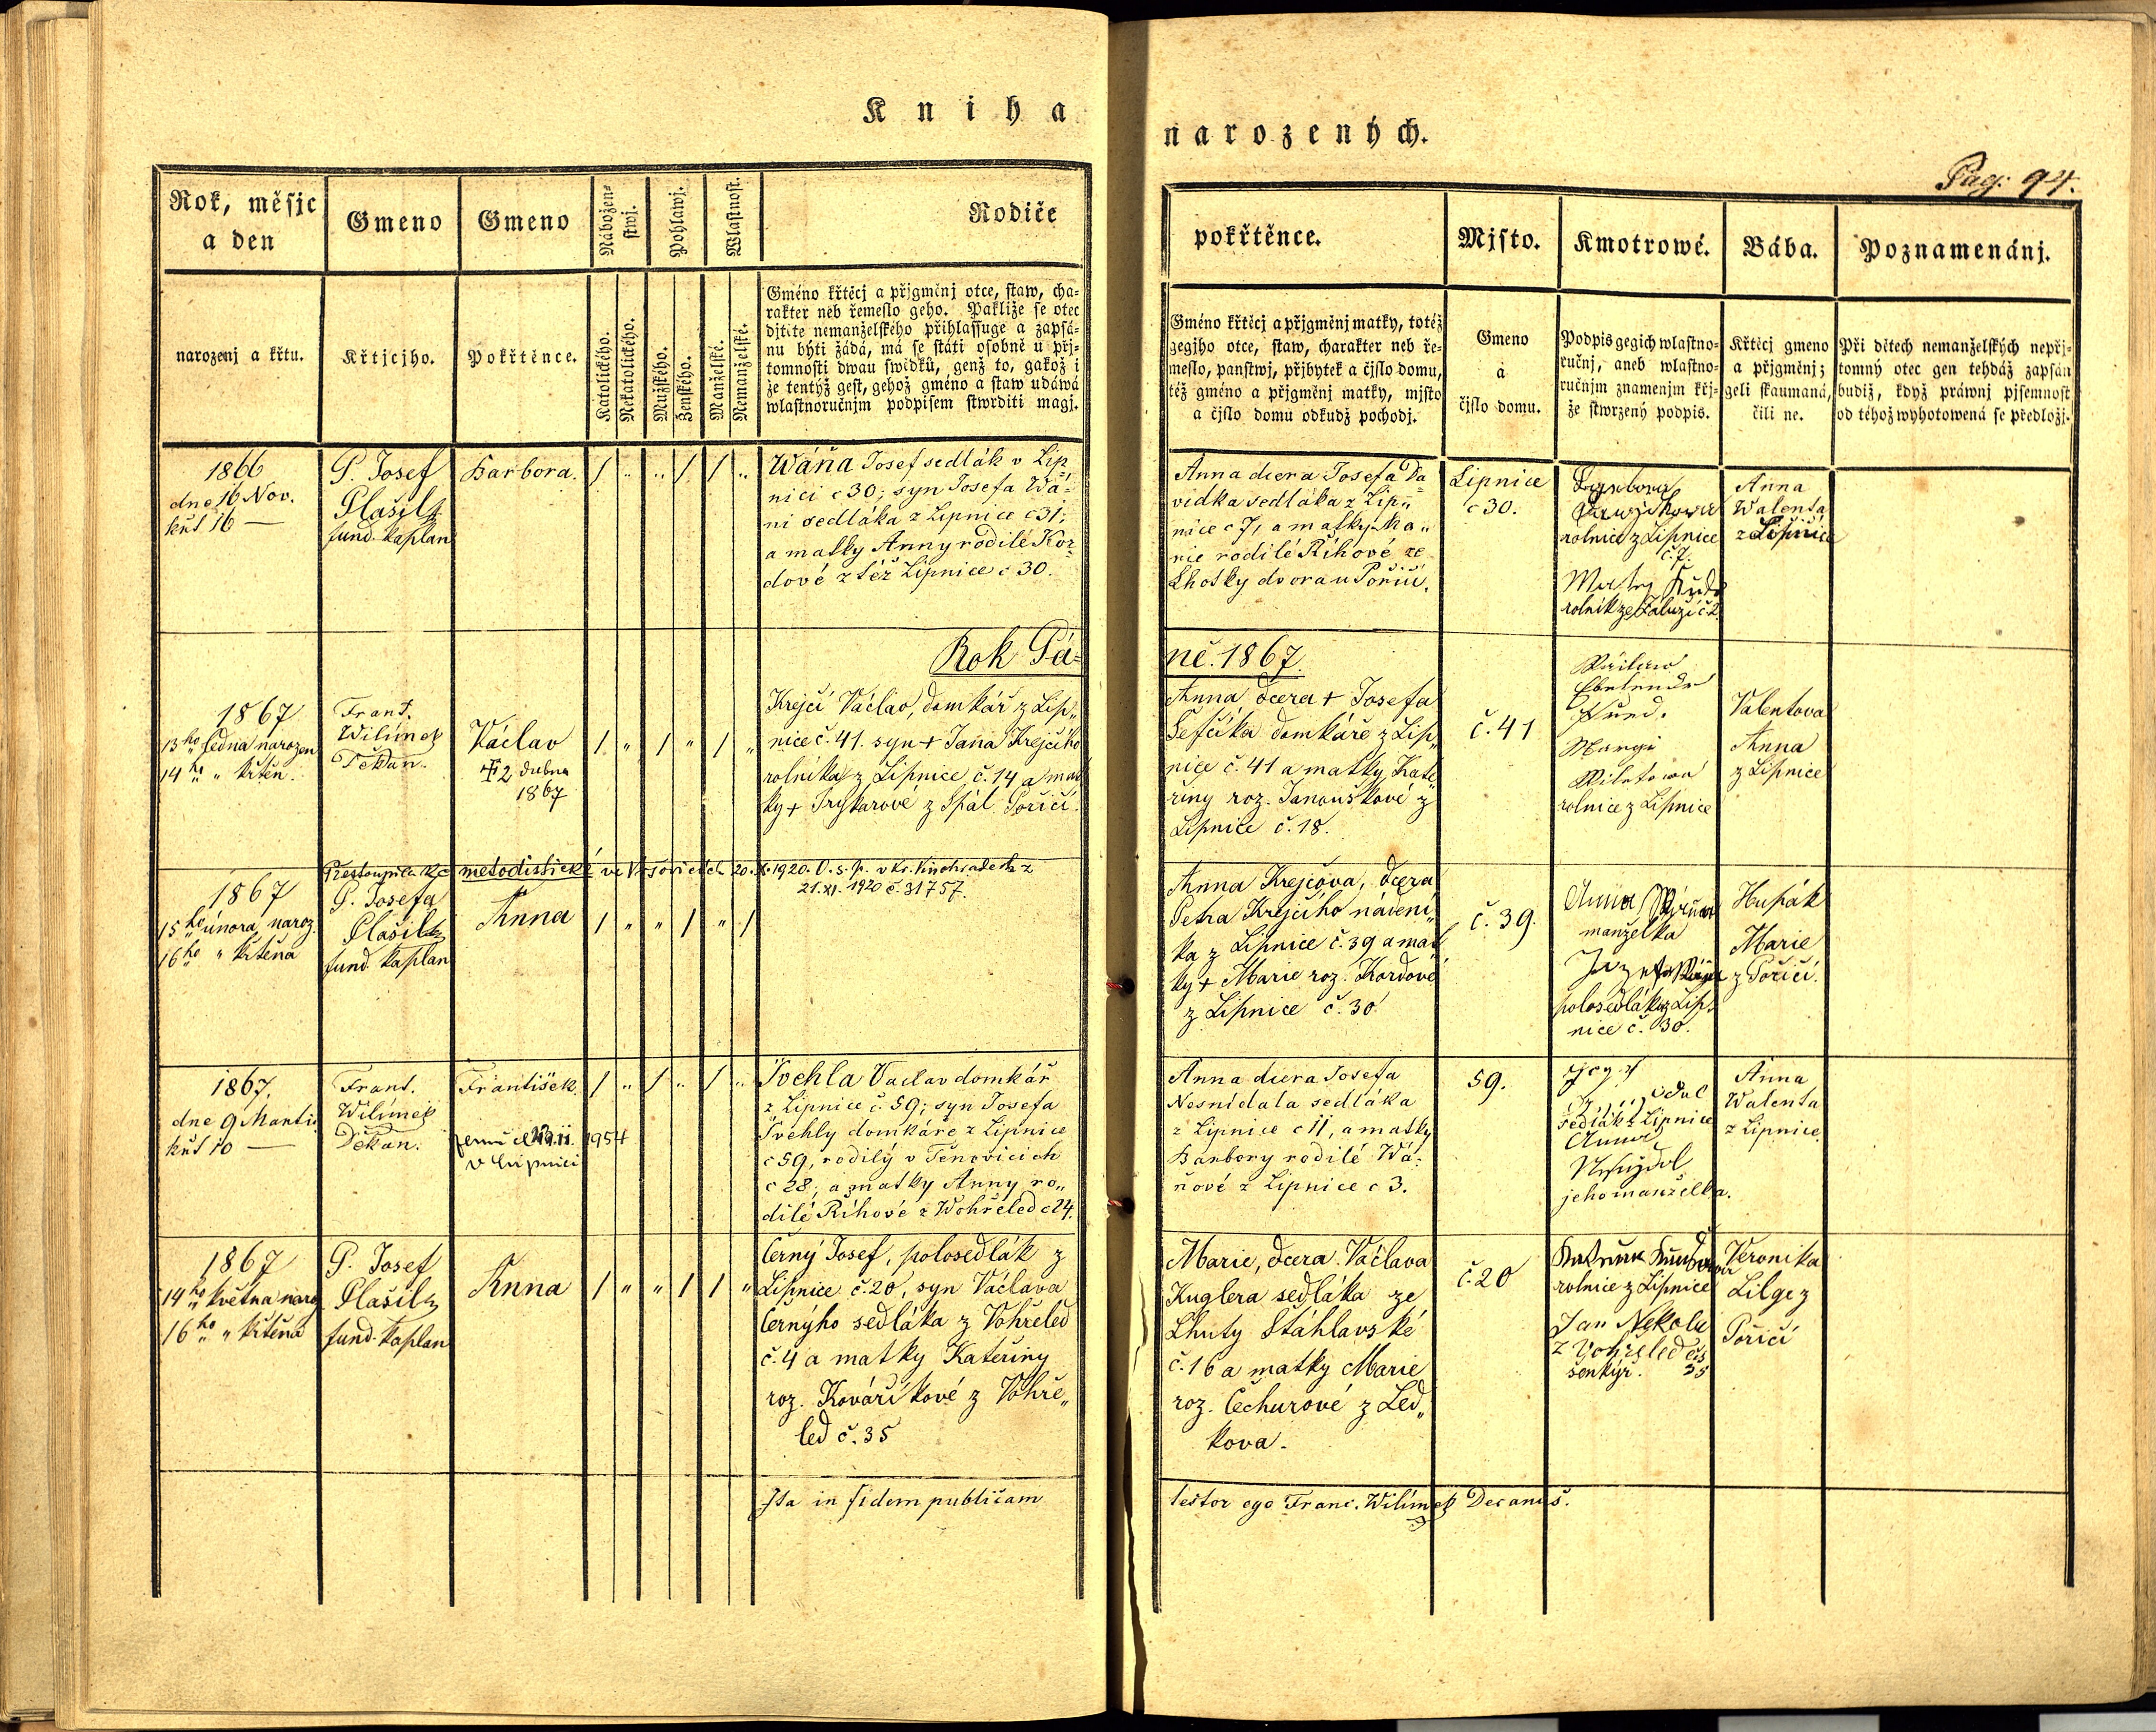 Kniha
narozených.
Pag. 94.
Rok, měsjc
a den
Gmeno
Gmeno
Nábožen-
stwj.
Pohlawj.
Wlastnost.
Rodiče
pokřtěnce.
Mjsto.
Kmotrowé.
Bába.
Poznamenánj.
narozenj a křtu.
Křtjcjho.
Pokřtěnce.
Katolického.
Nekatolického.
Mužského.
Ženského.
Manželské.
Nemanželské.
Gméno křtěcj a přjgměnj otce, staw, cha-
rakter neb řemeslo geho. Pakliže se otec
djtěte nemanželského přihlassuge a zapsá-
nu býti žádá, má se státi osobně u přj-
tomnosti dwau swědků, genž to, gakož i
že tentýž gest, gehož gméno a staw udáwá
wlastnoručnjm podpisem stwrditi magj.
Gméno křtěcj a přjgměnj matky, totéž
gegjho otce, staw, charakter neb ře-
meslo, panstwj, přjbytek a čjslo domu,
též gméno a přjgměnj matky, mjsto
a čjslo domu odkudž pochodj.
Gmeno
a
čjslo domu.
Podpis gegich wlastno-
ručnj, aneb wlastno-
ručnjm znamenjm křj-
že stwrzený podpis.
Křtěcj gmeno
a přjgměnj;
geli skaumaná,
čili ne.
Při dětech nemanželských nepřj-
tomný otec gen tehdáž zapsán
budiž, když práwnj pjsemnost
od téhož wyhotowená se předložj.
1866
dne 16 Nov.
křt 16 —
P. Josef
Plašil
fund. kaplan
Barbora.
Wáňa Josef sedlák v Lip
nici c 30; syn Josefa Wá-
ni sedláka z Lipnice c 31;
a matky Anny rodilé Kor-
dové z též Lipnice c 30.
Anna dcera Josefa Da
vidka sedláka z Lip„
nice c 7, a matky Ma„
rie rodilé Říhové ze
Lhotky dvora u Poříčí.
Lipnice
c 30.
rolnice z Lipnice
č. 7.
rolník ze Záluží č 2
Anna
Walenta
z Lipnice
Rok Pá-
ně. 1867.
1867
13ho ledna narozen
14ho „ křtěn.
Frant.
Wilímek
Děkan.
Václav
† 2 dubna
1867
Krejčí Václav, domkář z Lip„
nice č. 41. syn † Jana Krejčího
rolníka z Lipnice č. 14 a mat
ky † Trykarové z Spál Poříčí.
Anna, dcera † Josefa
Šefčíka domkáře z Lip„
nice č. 41 a matky Kate
řiny roz. Janouškové z
Lipnice č. 18.
č. 41
rolnice z Lipnice
Valentova
Anna
z Lipnice
Přestoupila k c. metodistické ve Vršovicích 20. X. 1920. O. s. p. v Kr. Vinohradech z
21. XI. 1920 č. 31757.
1867
15ho února naroz.
16ho „ křtěna
P. Josefa
Plašil
fund. kaplan
Anna
Anna Krejčova, dcera
Petra Krejčího nádení„
ka z Lipnice č. 39 a mat
ky † Marie roz. Kordové
z Lipnice č. 30
č. 39.
Anna
manželka
polosedláka z Lip-
nice č. 30.
Hupák
Marie
z Poříčí.
1867.
dne 9 Martii
křt 10 —
Frant.
Wilímek
Děkan.
František.
zemřel 13. II. 1954
v Lipnici
Švehla Vaclav domkář
z Lipnice č. 59; syn Josefa
Švehly domkáře z Lipnice
c 59, rodilý v Tenovicích
c 28; a matky Anny ro„
dilé Říhové z Wohřeled c 24.
Anna dcera Josefa
Nesnídala sedláka
z Lipnice c 11, a matky
Barbory rodilé Wá-
ňové z Lipnice c 3.
59.
sedlák z Lipnice
Anna
jeho manželka.
Anna
Walenta
z Lipnice.
1867
14ho května naro
16ho „ křtěna
P. Josef
Plašil
fund. kaplan
Anna
Černý Josef, polosedlák z
Lipnice č. 20, syn Václava
Černýho sedláka z Vohřeled
č. 4 a matky Kateřiny
roz. Kováříkové z Vohře„
led č. 35
Marie, dcera Václava
Kuglera sedláka ze
Lhuty Stáhlavské
č. 16 a matky Marie
roz. Čechurové z Led„
kova.
č. 20
rolnice z Lipnice
Jan Nekola
z Vohřeled čís
šenkýř. 35
Veronika
Lilge z
Poříčí
Ita in fidem publicam
testor ego Franc. Wilímek Decanus.